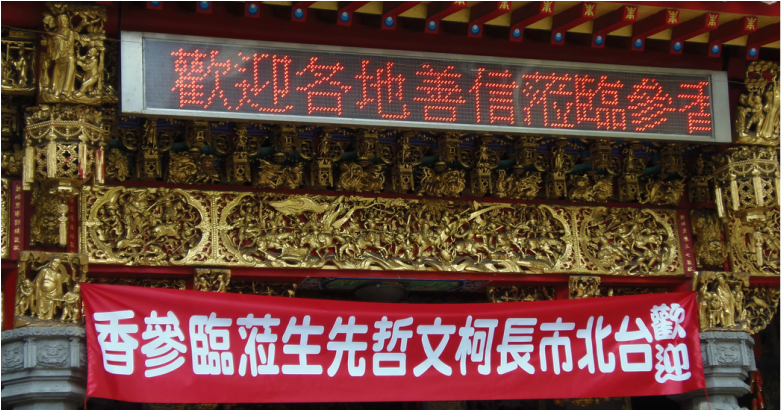 歡迎各地善信蒞臨參香
歡迎台北市長柯文哲先生蒞臨參香